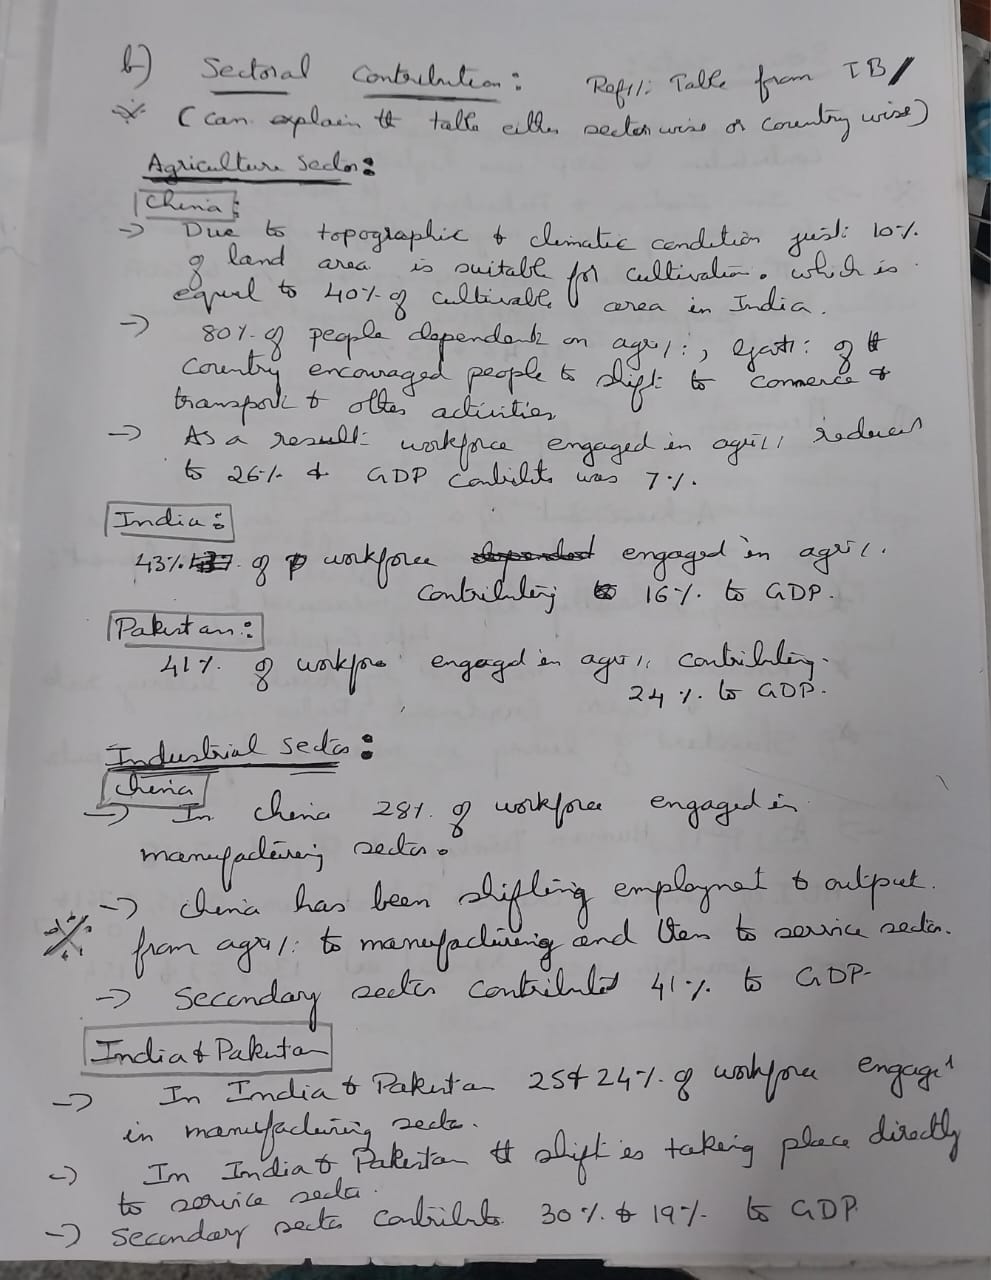 b) Sectoral Contribution: Ref: Table from TB/
※ (can explain the table either sector wise or Country wise)
Agriculture Sector:
China:
→ Due to topographic & climatic condition just 10%
of land area is suitable for cultivation. which is
equal to 40% of cultivable area in India.
→ 80% of people dependent on agri:, of the
Country encouraged people to shift to commerce &
transport & other activities
→ As a result workforce engaged in agri reduced
to 26% & GDP Contribits was 7%.
India:
43% of workforce dependent engaged in agri.
Contributing to 16% to GDP.
Pakistan:
41% of workfore engaged in agri Contributing
24% to GDP.
Industrial sector:
China
→ In china 28% of workforce engaged in
manufacturing sector.
※ → china has been shifting employnet & output
from agri: to manufacturing and then to service sector.
→ Secondary sector Contributed 41% to GDP-
India & Pakistan
→ In India & Pakistan 25 & 24% of workforce engaged
in manufacturing sector.
→ In India & Pakistan the shift is taking place directly
to service sector.
→ Secondary sector Contributes 30% & 19% to GDP